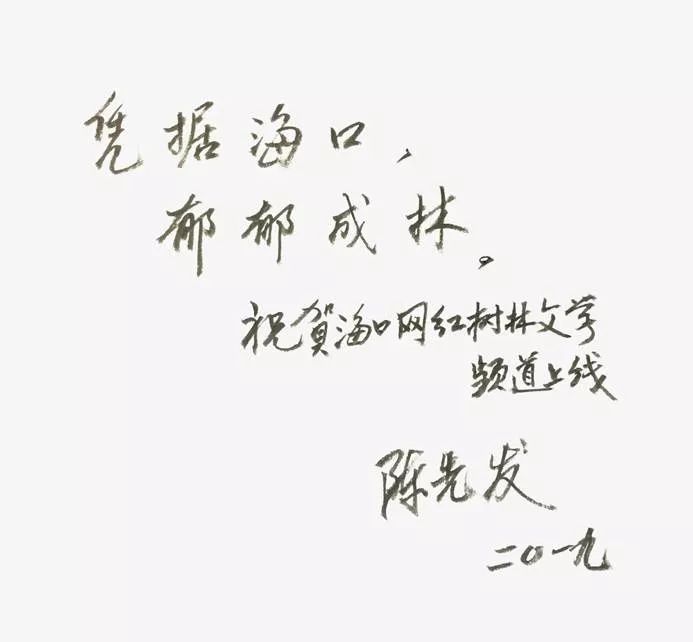 凭据海口，
郁郁成林。
祝贺海口网红树林文学
频道上线
陈先发
二〇一九